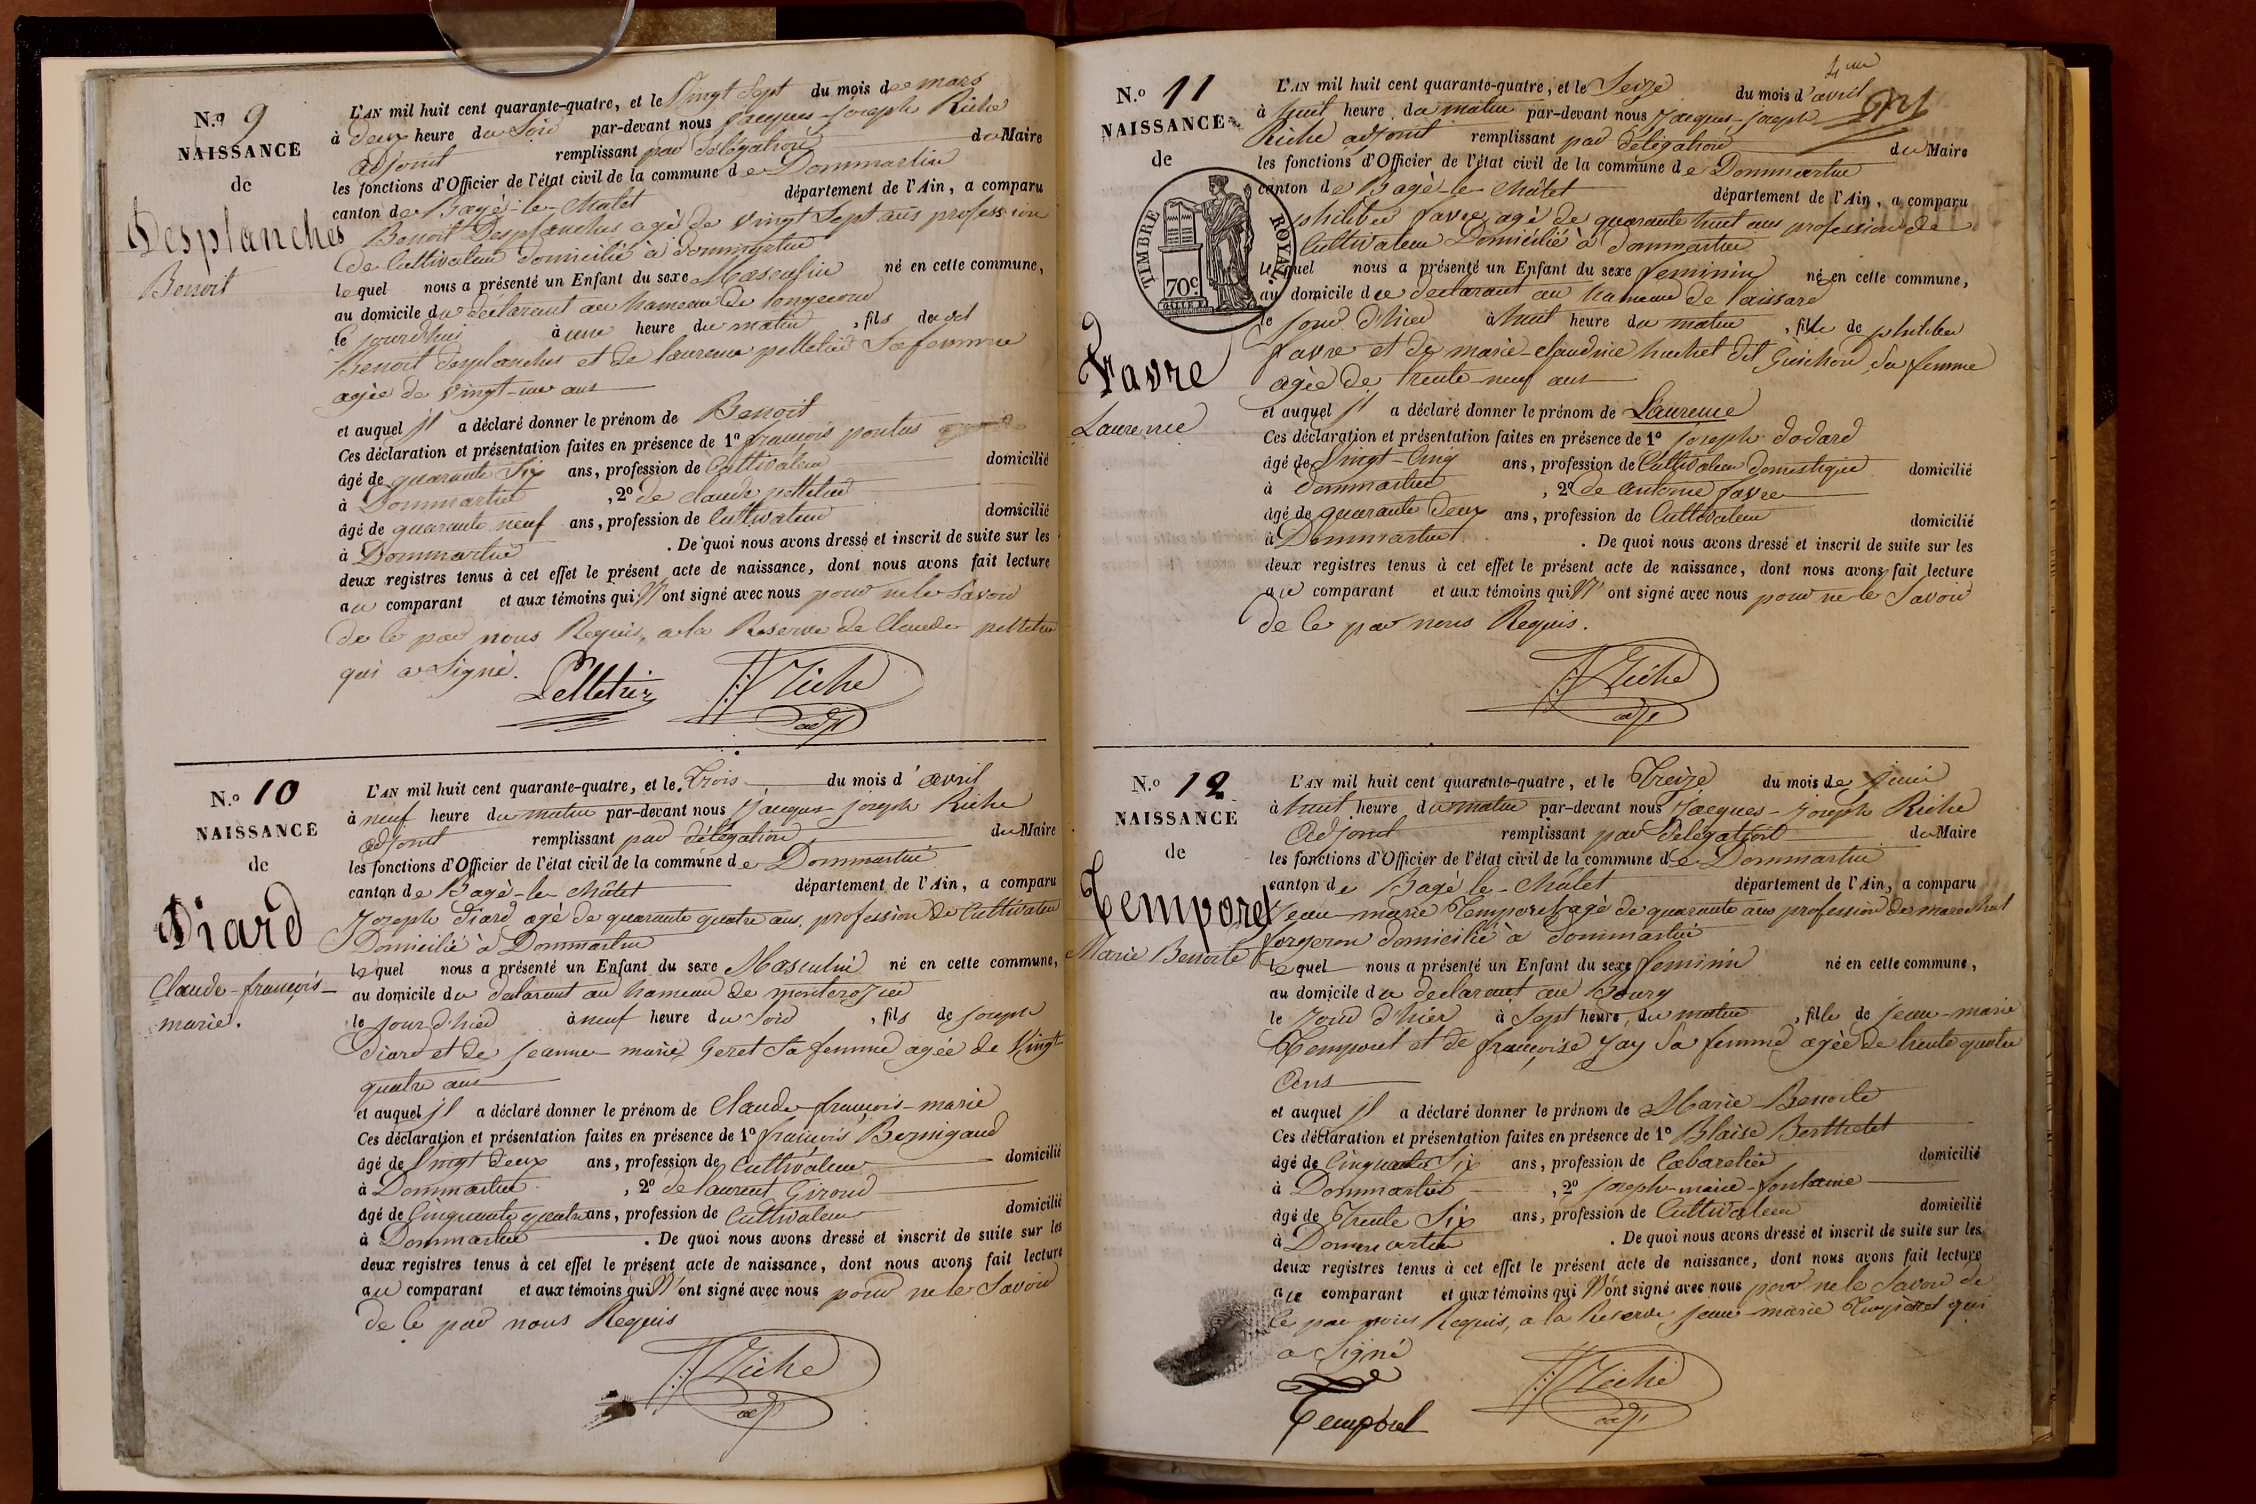 N.º 9
NAISSANCE
de
Desplanches
Benoit
L'AN mil huit cent quarante-quatre, et le Vingt Sept du mois de mars
à deux heure du Soir par-devant nous Jacques-Joseph Riche
adjoint remplissant par délégation du Maire
les fonctions d'Officier de l'état civil de la commune de Dommartin
canton de Bagé-le-Châtel département de l'Ain, a comparu
Benoit Desplanches agé de Vingt Sept ans profession
de Cultivateur domicilié à dommartin
lequel nous a présenté un Enfant du sexe Masculin né en cette commune,
au domicile du déclarant au hameau de
le jourd'hui à une heure du matin, fils de
Benoit desplanches et de laurence pelletier Sa femme
agée de Vingt-un ans
et auquel il a déclaré donner le prénom de Benoit
Ces déclaration et présentation faites en présence de 1º françois
âgé de quarante Six ans, profession de Cultivateur domicilié
à Dommartin, 2º de claude pelletier
âgé de quarante neuf ans, profession de Cultivateur domicilié
à Dommartin. De quoi nous avons dressé et inscrit de suite sur les
deux registres tenus à cet effet le présent acte de naissance, dont nous avons fait lecture
au comparant et aux témoins qui N'ont signé avec nous pour ne le Savoir
de ce par nous Requis, a la Reserve de Claude pelletier
qui a Signé.
Pelletier JJ Riche
adj
N.º 10
NAISSANCE
de
Diard
Claude-françois-
marie.
L'AN mil huit cent quarante-quatre, et le Trois du mois d'avril
à neuf heure du matin par-devant nous Jacques Joseph Riche
adjoint remplissant par délégation du Maire
les fonctions d'Officier de l'état civil de la commune de Dommartin
canton de Bagé-le-Châtel département de l'Ain, a comparu
Joseph Diard agé de quarante quatre ans, profession de Cultivateur
Domicilié à Dommartin
lequel nous a présenté un Enfant du sexe Masculin né en cette commune,
au domicile du declarant au hameau de
le jour d'hier à neuf heure du Soir, fils de Joseph
Diard et de Jeanne-marie Geret Sa femme agée de Vingt
quatre ans
et auquel il a déclaré donner le prénom de Claude-françois-marie
Ces déclaration et présentation faites en présence de 1º françois Bernigaud
âgé de Vingt deux ans, profession de Cultivateur domicilié
à Dommartin, 2º de laurent Giroud
âgé de Cinquante quatre ans, profession de Cultivateur domicilié
à Dommartin. De quoi nous avons dressé et inscrit de suite sur les
deux registres tenus à cet effet le présent acte de naissance, dont nous avons fait lecture
au comparant et aux témoins qui N'ont signé avec nous pour ne le Savoir
de ce par nous Requis
JJ Riche
adj
N.º 11
NAISSANCE
de
TIMBRE ROYAL.
70c.
Favre
Laurence
L'AN mil huit cent quarante-quatre, et le Seize du mois d'avril
à huit heure du matin par-devant nous Jacques-Joseph
Riche adjoint remplissant par délégation du Maire
les fonctions d'Officier de l'état civil de la commune de Dommartin
canton de Bagé-le-Châtel département de l'Ain, a comparu
philiber favre agé de quarante huit ans profession de
Cultivateur Domicilié à Dommartin
lequel nous a présenté un Enfant du sexe feminin né en cette commune,
au domicile du declarant au hameau de
le jour d'hier à huit heure du matin, fille de philiber
favre et de marie-claudine huchet dit Guichon Sa femme
agée de trente-neuf ans
et auquel il a déclaré donner le prénom de Laurence
Ces déclaration et présentation faites en présence de 1º joseph dodard
âgé de Vingt-Cinq ans, profession de Cultivateur domestique domicilié
à dommartin, 2º de antoine favre
âgé de quarante deux ans, profession de Cultivateur domicilié
à Dommartin. De quoi nous avons dressé et inscrit de suite sur les
deux registres tenus à cet effet le présent acte de naissance, dont nous avons fait lecture
au comparant et aux témoins qui N'ont signé avec nous pour ne le Savoir
de ce par nous Requis.
JJ Riche
adj
N.º 12
NAISSANCE
de
Temporel
Marie Benoite
L'AN mil huit cent quarante-quatre, et le Treize du mois de Juin
à huit heure du matin par-devant nous Jacques-Joseph Riche
Adjoint remplissant par délégation du Maire
les fonctions d'Officier de l'état civil de la commune de Dommartin
canton de Bagé-le-Châtel département de l'Ain, a comparu
Jean-marie Temporel agé de quarante ans profession de marechal
forgeron domicilié à dommartin
lequel nous a présenté un Enfant du sexe feminin né en cette commune,
au domicile du declarant au Bourg
le jour d'hier à Sept heure du matin, fille de jean-marie
Temporel et de françoise Jay Sa femme agée de trente quatre
ans
et auquel il a déclaré donner le prénom de Marie-Benoite
Ces déclaration et présentation faites en présence de 1º Blaise Berthelet
âgé de Cinquante Six ans, profession de Cabaretier domicilié
à Dommartin, 2º joseph-marie-fontaine
âgé de Trente Six ans, profession de Cultivateur domicilié
à Dommartin. De quoi nous avons dressé et inscrit de suite sur les
deux registres tenus à cet effet le présent acte de naissance, dont nous avons fait lecture
au comparant et aux témoins qui N'ont signé avec nous pour ne le Savoir de
ce par nous Requis, a la Reserve jean-marie Temporel qui
a Signé
Temporel JJ Riche
adj